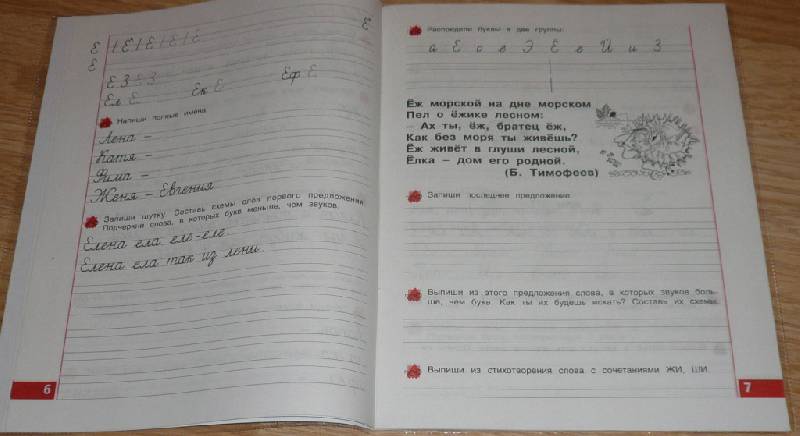 Е
Е Е Е Е Е Е
Е
Е З Е З
Ел Е Ек Е Еф Е
Напиши полные имена.
Лена –
Катя –
Фима –
Женя – Евгения
Запиши шутку. Составь схемы слов первого предложения.
Подчеркни слова, в которых букв меньше, чем звуков.
Елена ела еле-еле.
Елена ела так из лени.
6
Распредели буквы в две группы:
а Е с в Э Ё в Й и З
Ёж морской на дне морском
Пел о ёжике лесном:
– Ах ты, ёж, братец ёж,
Как без моря ты живёшь?
Ёж живёт в глуши лесной,
Ёлка – дом его родной.
(Б. Тимофеев)
Запиши последнее предложение.
Выпиши из этого предложения слова, в которых звуков боль-
ше, чем букв. Как ты их будешь искать? Составь их схемы.
Выпиши из стихотворения слова с сочетаниями ЖИ, ШИ.
7